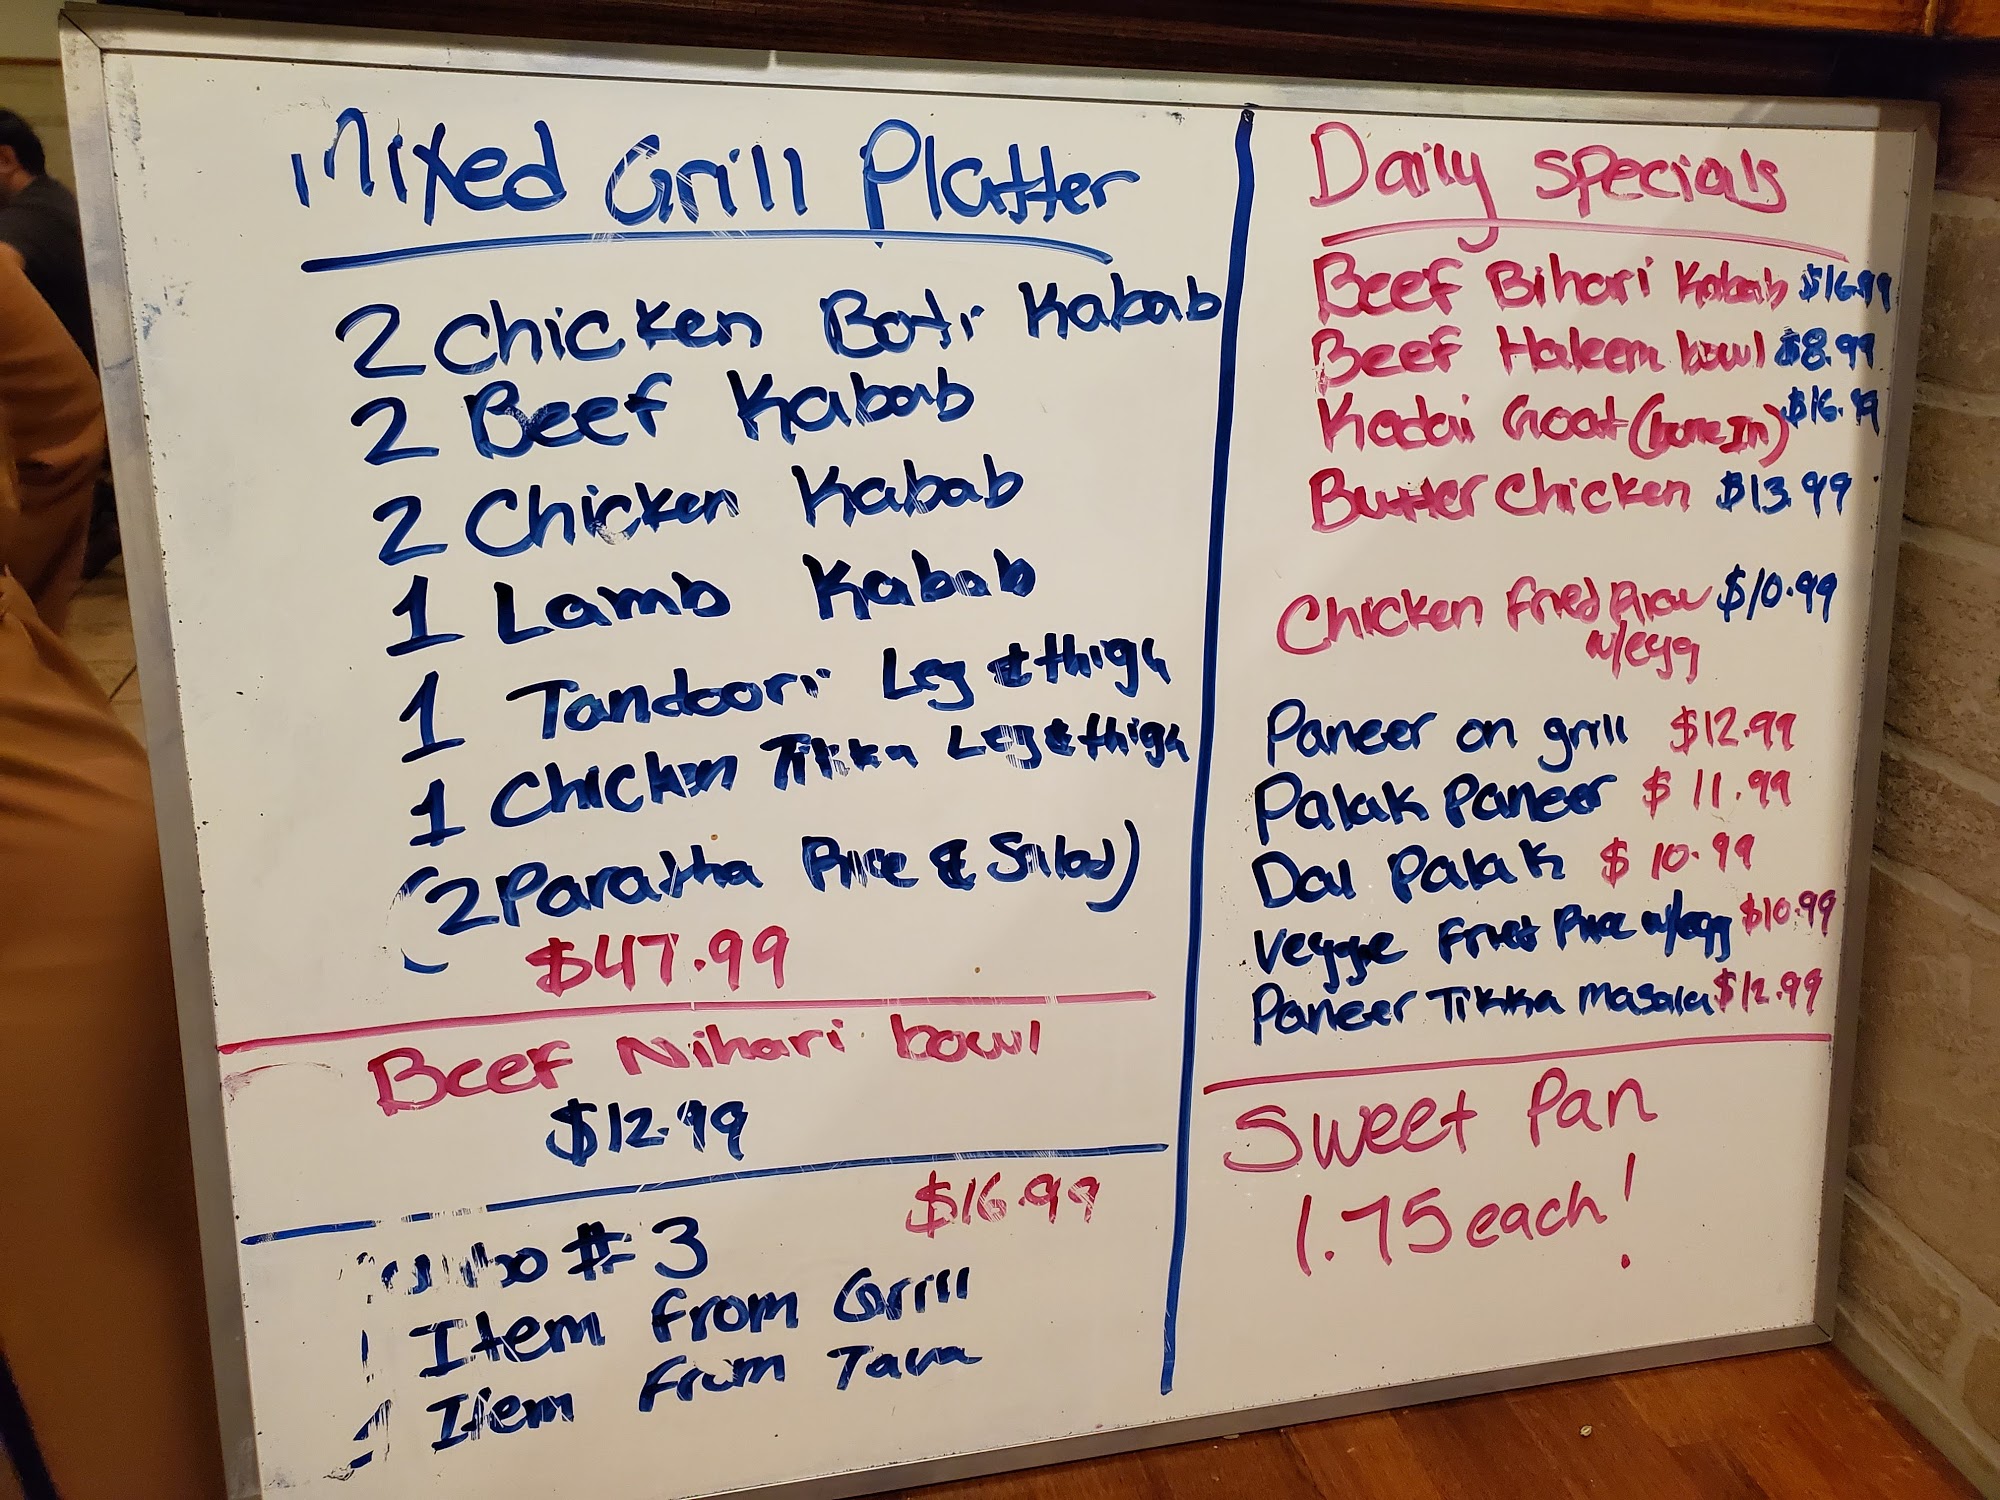 Mixed Grill Platter
2 Chicken Boti Kabab
2 Beef Kabab
2 Chicken Kabab
1 Lamb Kabab
1 Tandoori Leg & thigh
1 Chicken Tikka Leg & thigh
(2 Paratha Rice & Salad)
$47.99
Beef Nihari bowl
$12.99
$16.99
#3
1 Item From Grill
1 Item From Tava
Daily Specials
Beef Bihari Kabab $16.99
Beef Haleem bowl $8.99
Kadai Goat (bone In) $16.99
Butter Chicken $13.99
Chicken Fried Rice $10.99
w/egg
Paneer on grill $12.99
Palak Paneer $11.99
Dal Palak $10.99
Veggie Fried Rice w/egg $10.99
Paneer Tikka Masala $12.99
Sweet Pan
1.75 each!